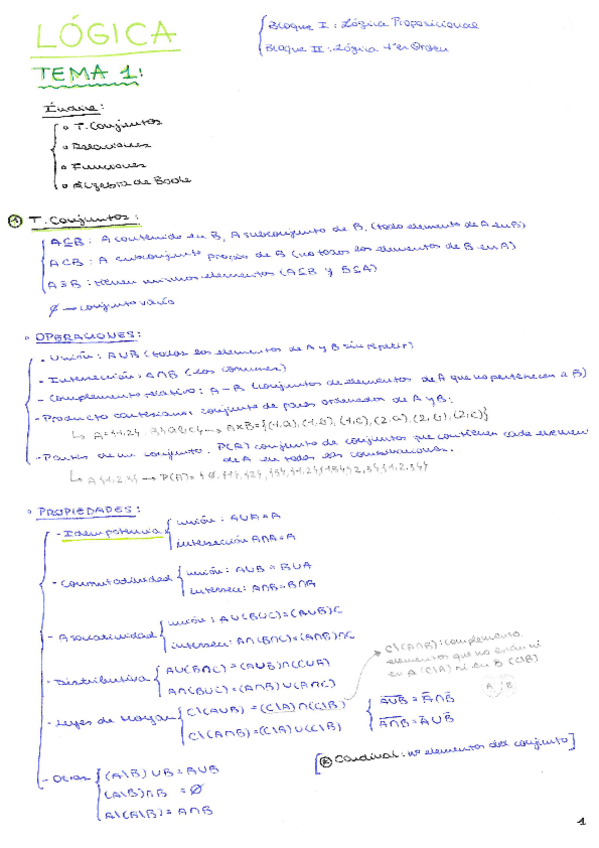 LÓGICA
Bloque I : Lógica Proposicional
Bloque II : Lógica 1er Orden
TEMA 1:
Índice:
• T. Conjuntos
• Relaciones
• Funciones
• Álgebra de Boole
① T. Conjuntos:
A⊆B : A contenido en B, A subconjunto de B. (todo elemento de A en B)
A⊂B : A subconjunto propio de B (no todos los elementos de B en A)
A=B : tienen mismos elementos (A⊆B y B⊆A)
∅ → conjunto vacío
• OPERACIONES:
- Unión : A∪B (todos los elementos de A y B sin repetir)
- Intersección : A∩B (los comunes)
- Complemento relativo : A-B (conjuntos de elementos de A que no pertenecen a B)
- Producto cartesiano: conjunto de pares ordenados de A y B:
↳ A={1,2} B={a,b,c} → A×B={(1,a),(1,b),(1,c),(2,a),(2,b),(2,c)}
- Partes de un conjunto. P(A) conjunto de conjuntos que contienen cada elemen
de A en todas las combinaciones.
• PROPIEDADES:
- Idempotencia
unión : A∪A=A
intersección A∩A=A
- Conmutatividad
unión : A∪B = B∪A
intersec: A∩B=B∩A
- Asociatividad
unión : A∪(B∪C)=(A∪B)∪C
intersec: A∩(B∩C)=(A∩B)∩C
- Distributiva
A∩(B∪C)=(A∩B)∪(A∩C)
- Leyes de Morgan
C\(A∪B) = (C\A)∩(C\B)
C\(A∩B)=(C\A)∪(C\B)
C\(A∩B): complemento
elementos que no están ni
en A (C\A) ni en B (C\B)
A B
- Otras
(A\B)∪B=A∪B
(A\B)∩B = ∅
A\(A\B)=A∩B
Cardinal: nº elementos del conjunto]
1